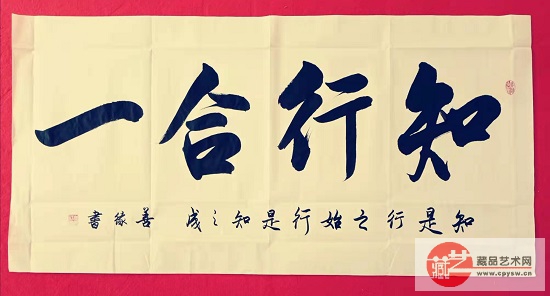 知行合一
知是行之始行是知之成 善缘書
藏艺
藏品艺术网
www.cpysw.cn